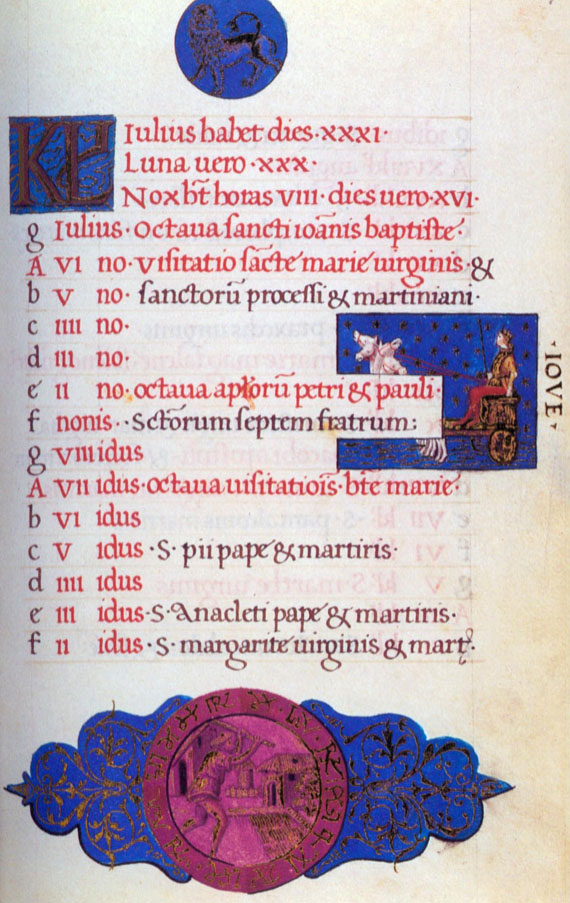 KL Iulius habet dies·xxxi·
Luna uero·xxx·
Nox hr̄t horas viii·dies uero·xvi·
g Iulius·Octaua sancti ioānis baptiste·
A vi no·visitatio sāctę marię uirginis·&
b v no· sanctorū processi & martiniani·
c iiii no·
d iii no·
e ii no·octaua aptōrū petri & pauli·
f nonis··Sctōrum septem fratrum:
g viii idus
A vii idus·octaua uisitatiōis·btē marię·
b vi idus
c v idus·S·pii papę & martiris·
d iiii idus
e iii idus·S·Anacleti papę & martiris·
f ii idus·S·margaritę uirginis & mart̄·
·IOVE·